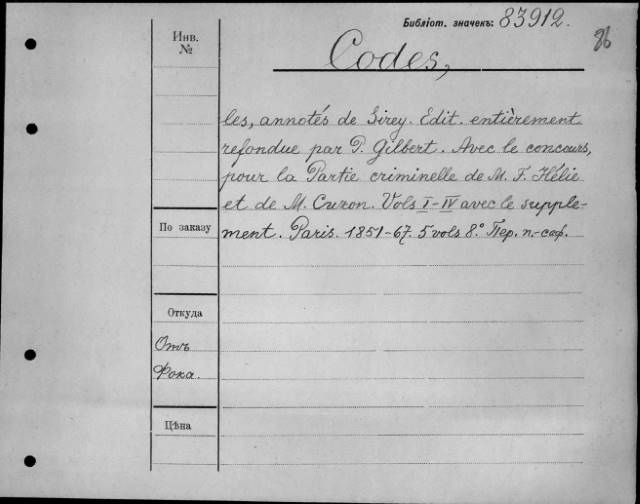 Библіот. значекъ: 83912.
86
Инв.
№
Codes,
les, annotés de Sirey. Edit. entièrement
refondue par P. Gilbert. Avec le concours,
pour la Partie criminelle de M. F. Hélie
et de M. Cuzon. Vols I-IV avec le supple-
ment. Paris. 1851-67. 5 vols 8.° Пер. п.-саф.
По заказу
Откуда
Отъ
Фока.
Цѣна